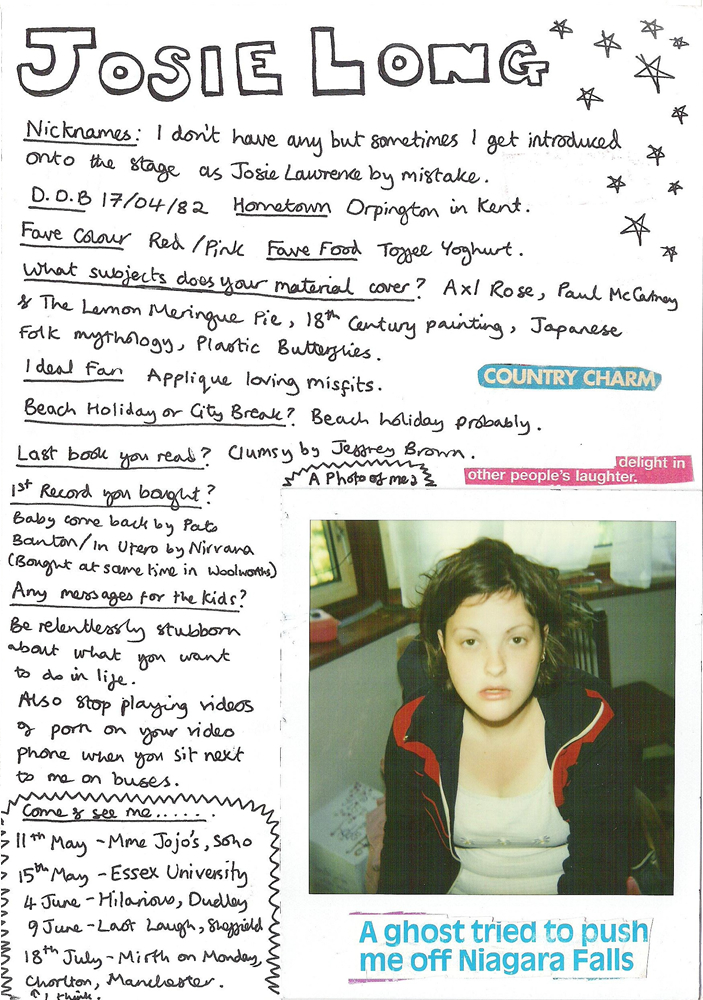 JOSIE LONG
Nicknames: I don't have any but sometimes I get introduced
onto the stage as Josie Lawrence by mistake.
D.O.B 17/04/82 Hometown Orpington in Kent.
Fave Colour Red/Pink Fave Food Toffee Yoghurt.
What subjects does your material cover? Axl Rose, Paul McCartney
& The Lemon Meringue Pie, 18th Century painting, Japanese
Folk mythology, Plastic Butterflies.
Ideal Fan Applique loving misfits.
COUNTRY CHARM
Beach Holiday or City Break? Beach holiday probably.
Last book you read? Clumsy by Jeffrey Brown.
delight in
other people's laughter.
1st Record you bought?
Baby come back by Pato
Banton/In Utero by Nirvana
(Bought at same time in Woolworths)
Any messages for the kids?
Be relentlessly stubborn
about what you want
to do in life.
Also stop playing videos
of porn on your video
phone when you sit next
to me on buses.
Come & see me......
11th May - Mme Jojo's, Soho
15th May - Essex University
4 June - Hilarious, Dudley
9 June - Last Laugh, Sheffield
18th July - Mirth on Monday,
Chorlton, Manchester.
↑ I think.
A Photo of me
A ghost tried to push
me off Niagara Falls